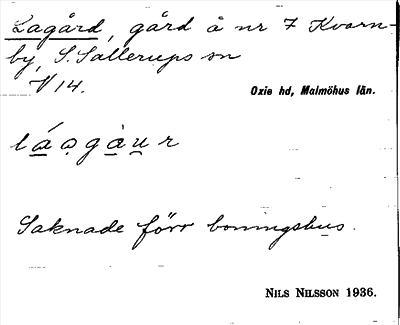 Lagård, gård å nr 7 Kvarn-
by, S. Sallerups sn
V 14.
Oxie hd, Malmöhus län.
Saknade förr boningshus.
NILS NILSSON 1936.